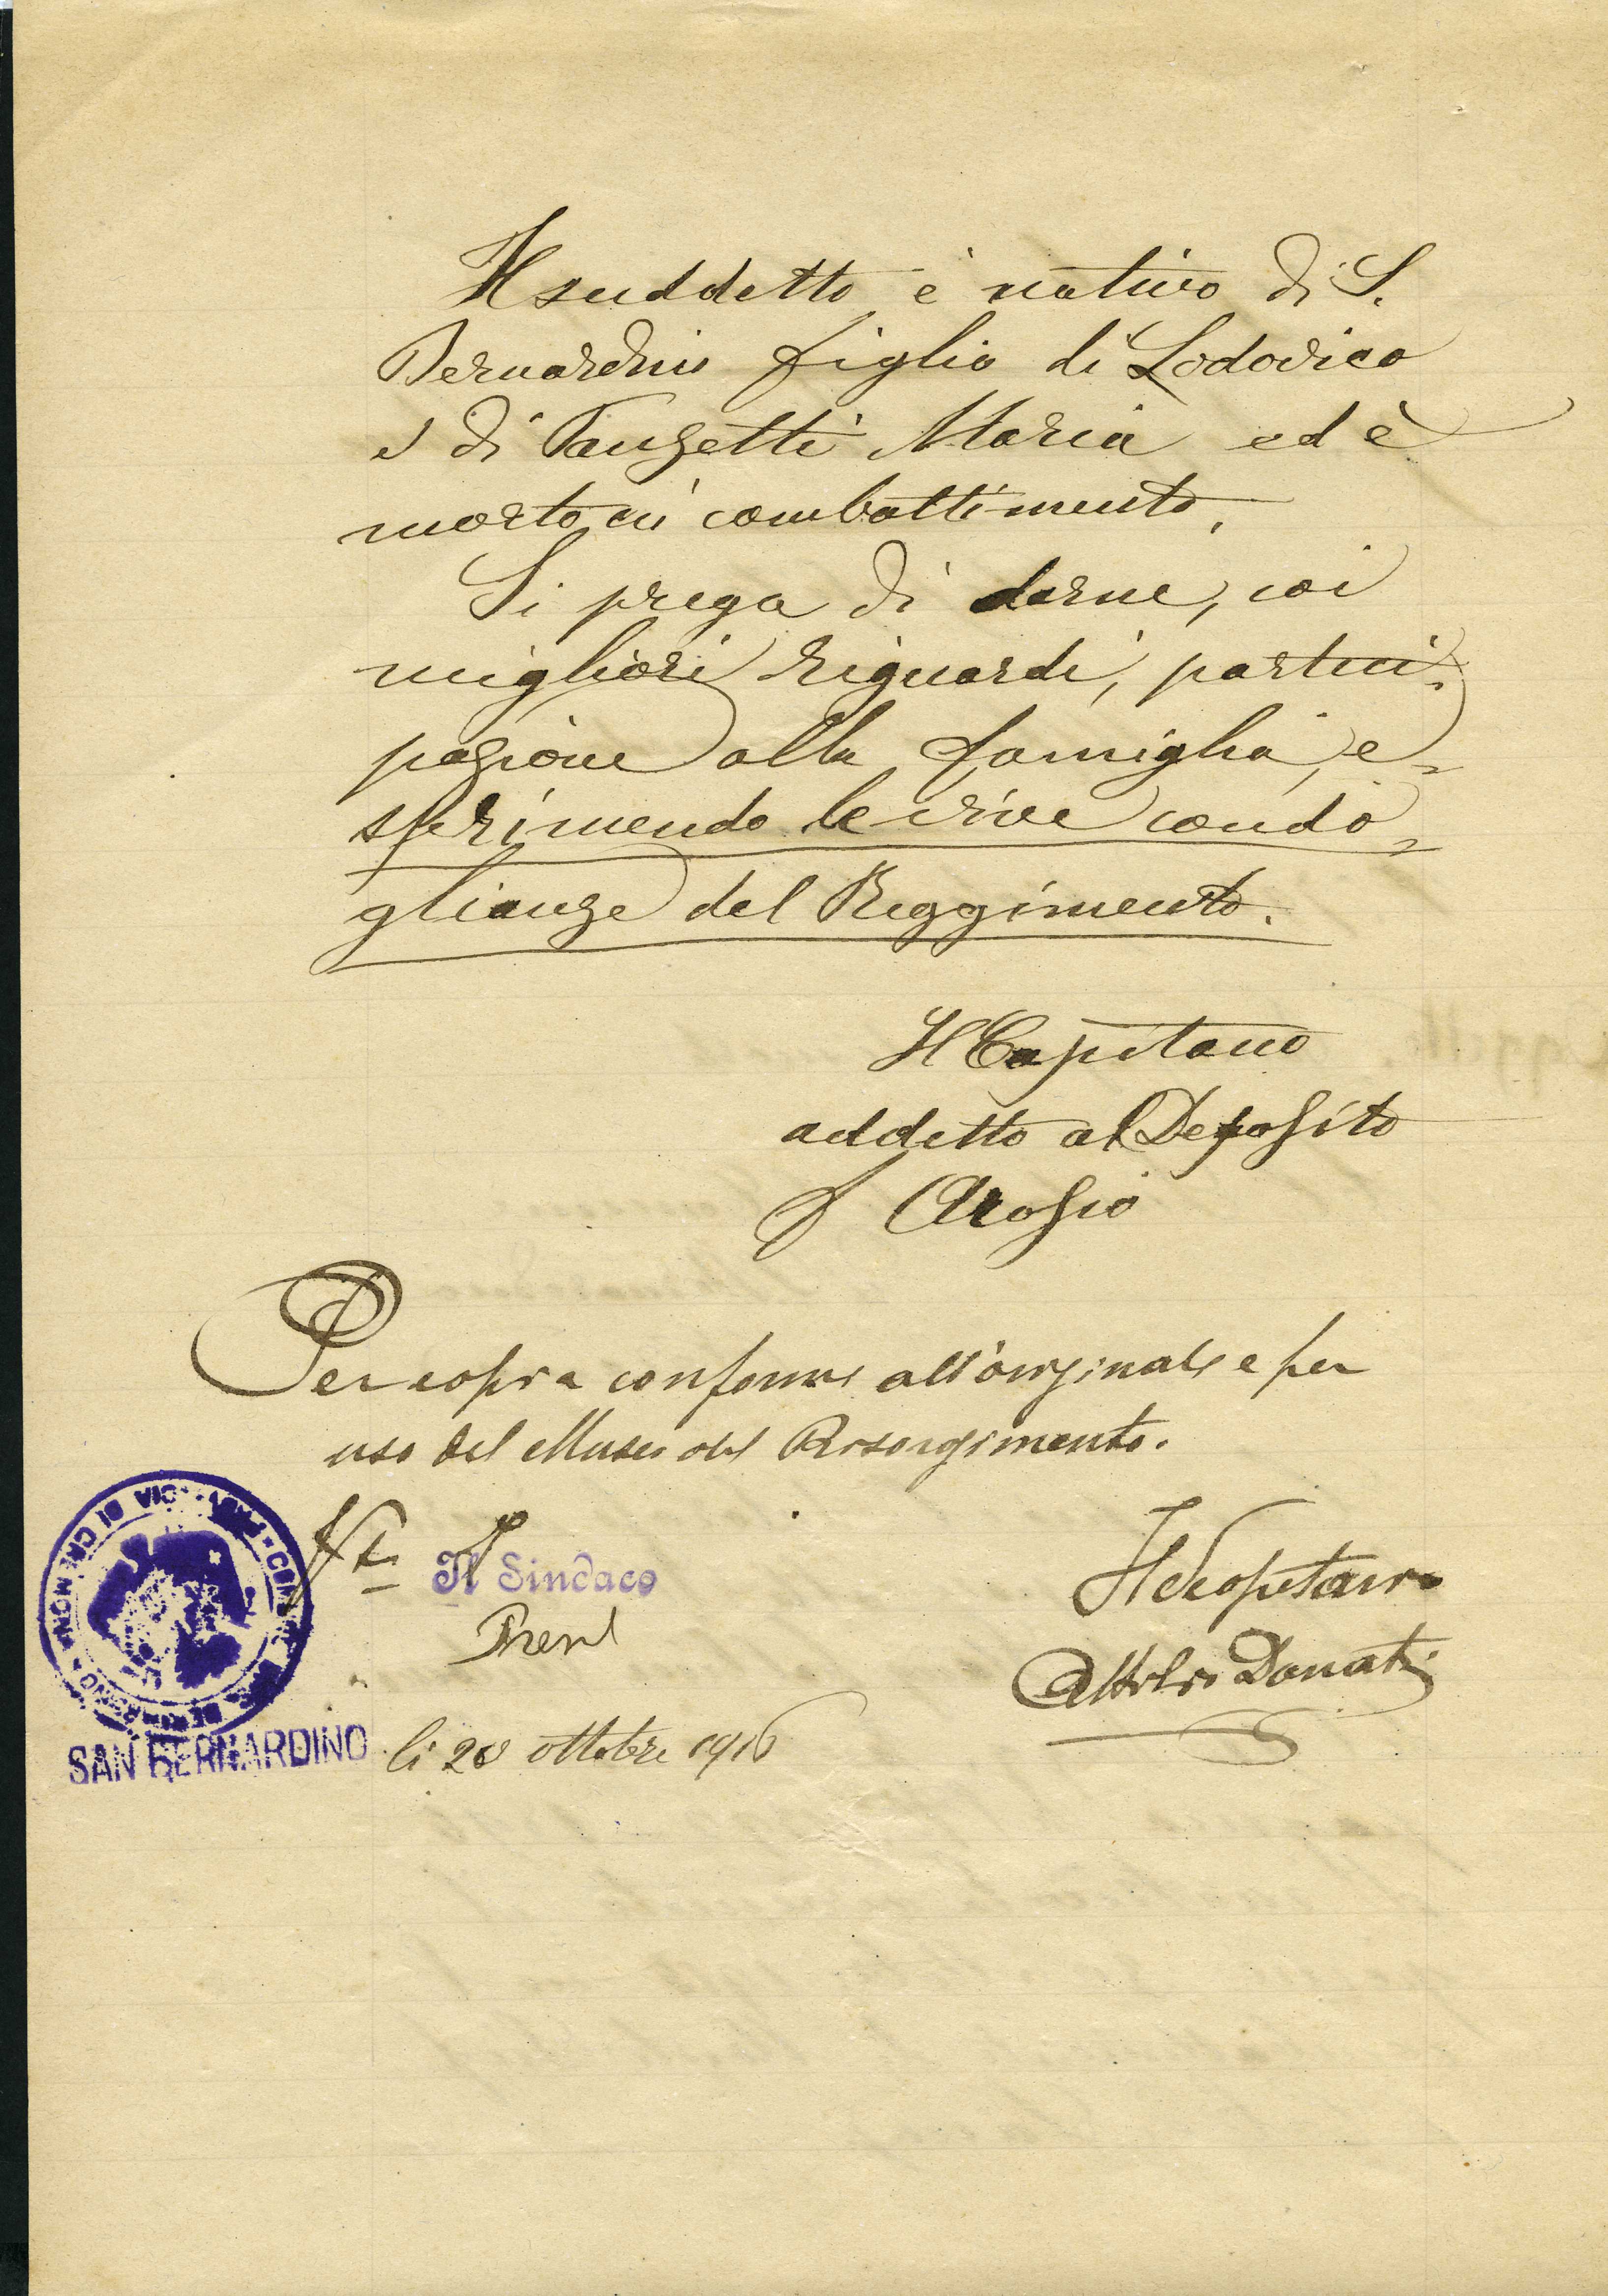 Il suddetto è nativo di S.
Bernardino figlio di Lodovico
e di Fanzetti Maria ed è
morto in combattimento.
Si prega di darne, coi
migliori riguardi, parteci-
pazione alla famiglia, e-
sprimendo le vive condo-
glianze del Reggimento.
Il Capitano
addetto al Deposito
F Arosio
Per copia conforme all'originale e per
uso del Museo del Risorgimento.
Vto Il Sindaco
Il Segretario
Attilio Donati
SAN BERNARDINO li 28 ottobre 1916